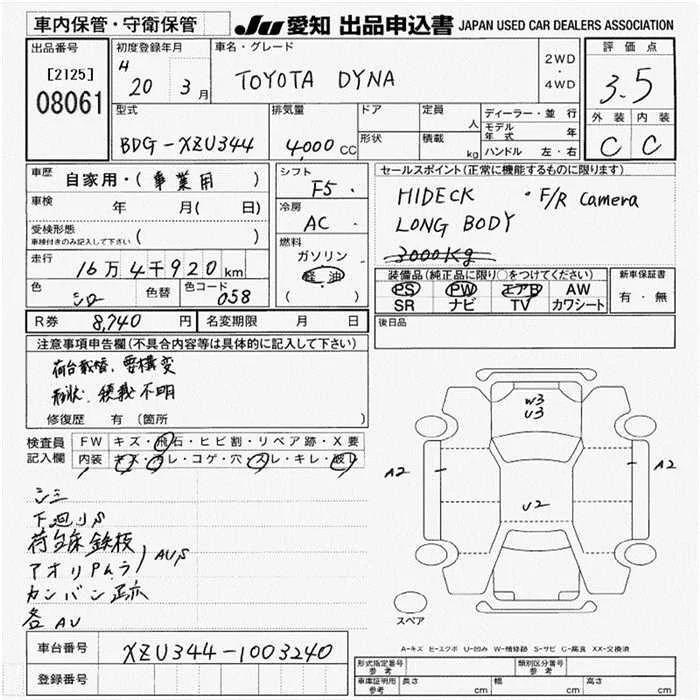 車内保管・守衛保管
JU 愛知 出品申込書 JAPAN USED CAR DEALERS ASSOCIATION
出品番号
[2125]
08061
初度登録年月
H 20 3月
車名・グレード
TOYOTA DYNA
2WD
・
4WD
評価点
3.5
外装 内装
C C
型式
BDG-XZU344
排気量
4,000 CC
ドア
形状
定員
人
積載
kg
ディーラー・並行
モデル年式 年
ハンドル 左・右
車歴 自家用・(事業用)
車検 年 月(日)
受検形態
車検付きのみ記入して下さい ( )
走行 16万4千920km
色 シロ 色替 色コード 058
シフト
F5
冷房
AC
燃料
ガソリン
軽・油
( )
セールスポイント(正常に機能するものに限ります)
HIDECK ・F/R Camera
LONG BODY
3000Kg
装備品(純正品に限り○をつけてください)
PS PW エアB AW
SR ナビ TV カワシート
新車保証書
有・無
R券 8,740円 名変期限 月 日
後日品
注意事項申告欄(不具合内容等は具体的に記入して下さい)
荷台載替、要構変
形状、積載不明
修復歴 有 (箇所 )
検査員記入欄
FW キズ・飛石・ヒビ割・リペア跡・X要
内装 キズ・ヨゴレ・コゲ・穴・スレ・キレ・破レ
シミ
下廻りS
AU,S
カンバン跡
各AU
W3
U3
A2
A2
U2
スペア
A-キズ E-エクボ U-凹み W-補修跡 S-サビ C-腐食 XX-交換済
車台番号 XZU344-1003240
登録番号
形式指定番号
参考
類別区分番号
参考
車庫証明用
参考
長さ cm 幅 cm 高さ cm